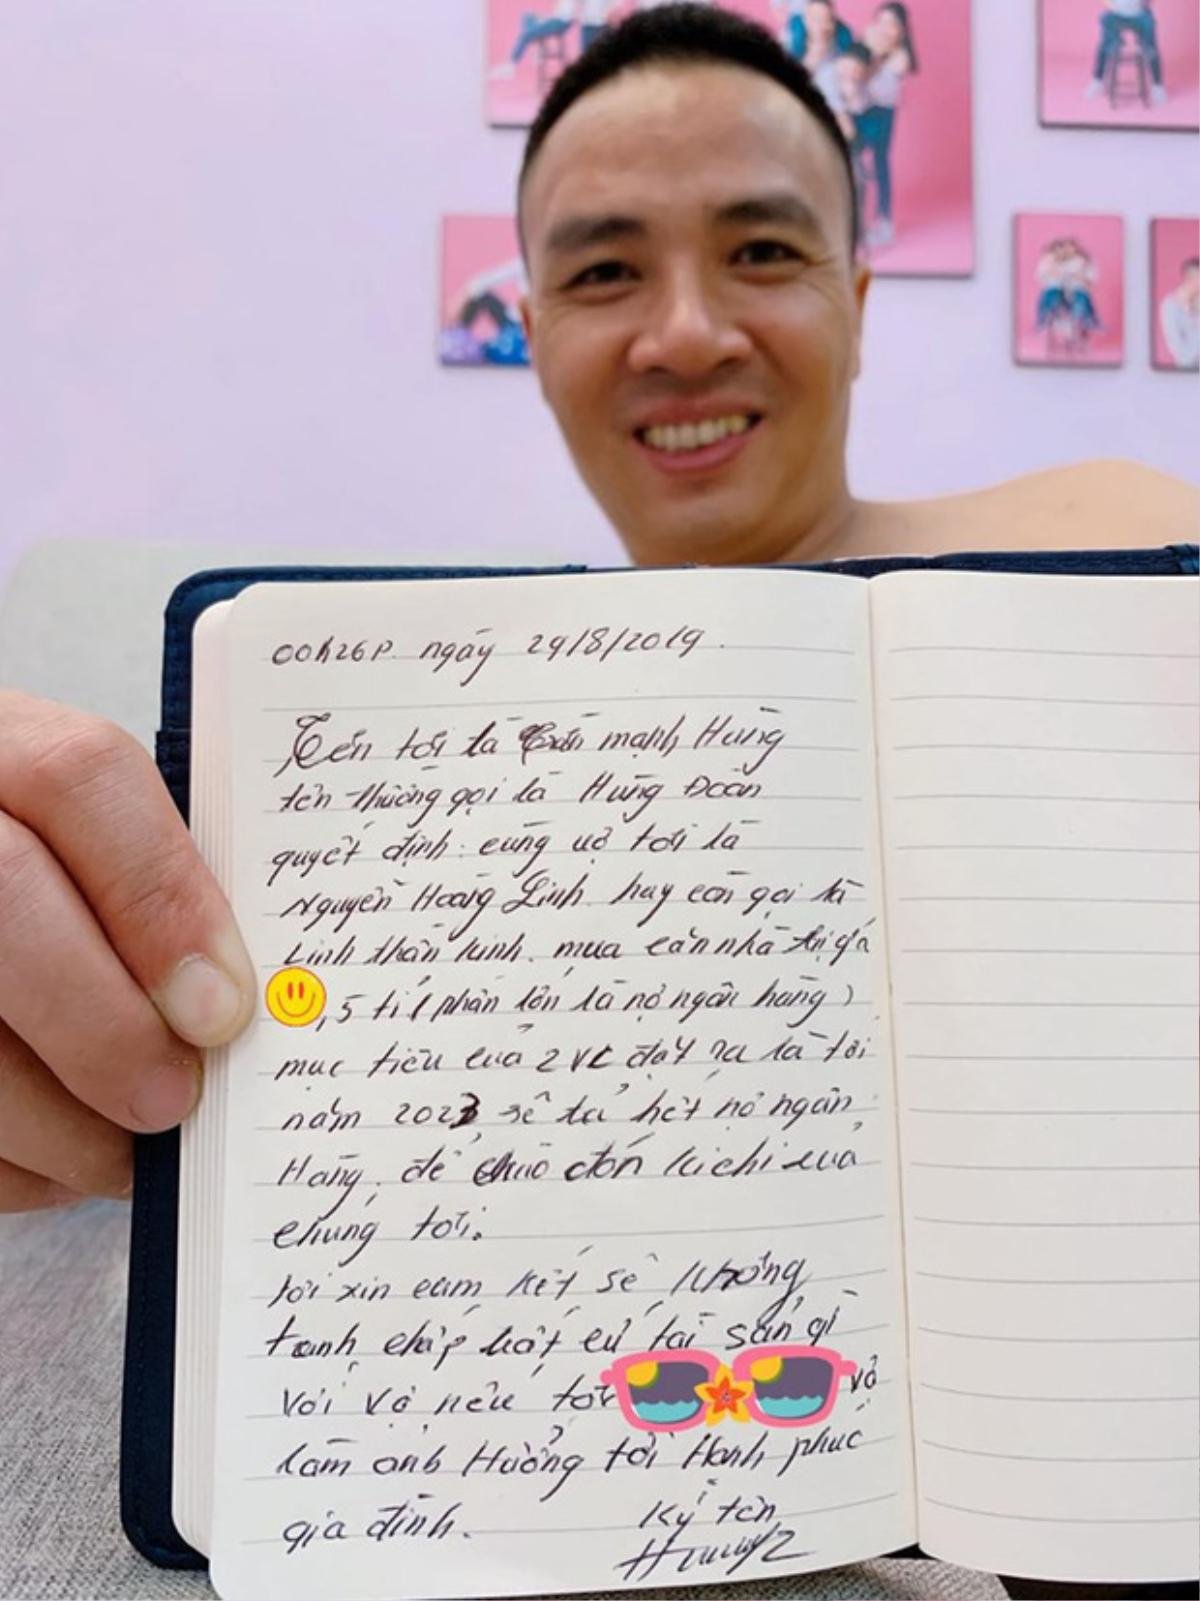 00h26p. ngày 29/8/2019.
Tên tôi là Trần mạnh Hùng
tên thường gọi là Hùng Đoàn
quyết định: cùng vợ tôi là
Nguyễn Hoàng Linh. hay còn gọi là
Linh thần kinh. mua căn nhà trị giá
,5 tỉ (phần lớn là nợ ngân hàng)
mục tiêu của 2 VC đặt ra là tới
năm 2023 sẽ trả hết nợ ngân
Hàng, để chào đón kichi của
chúng tôi.
tôi xin cam kết sẽ không
tranh chấp bất cứ tài sản gì
Với Vợ nếu tôi vợ
làm ảnh Hưởng tới Hạnh phúc
gia đình.
Ký tên